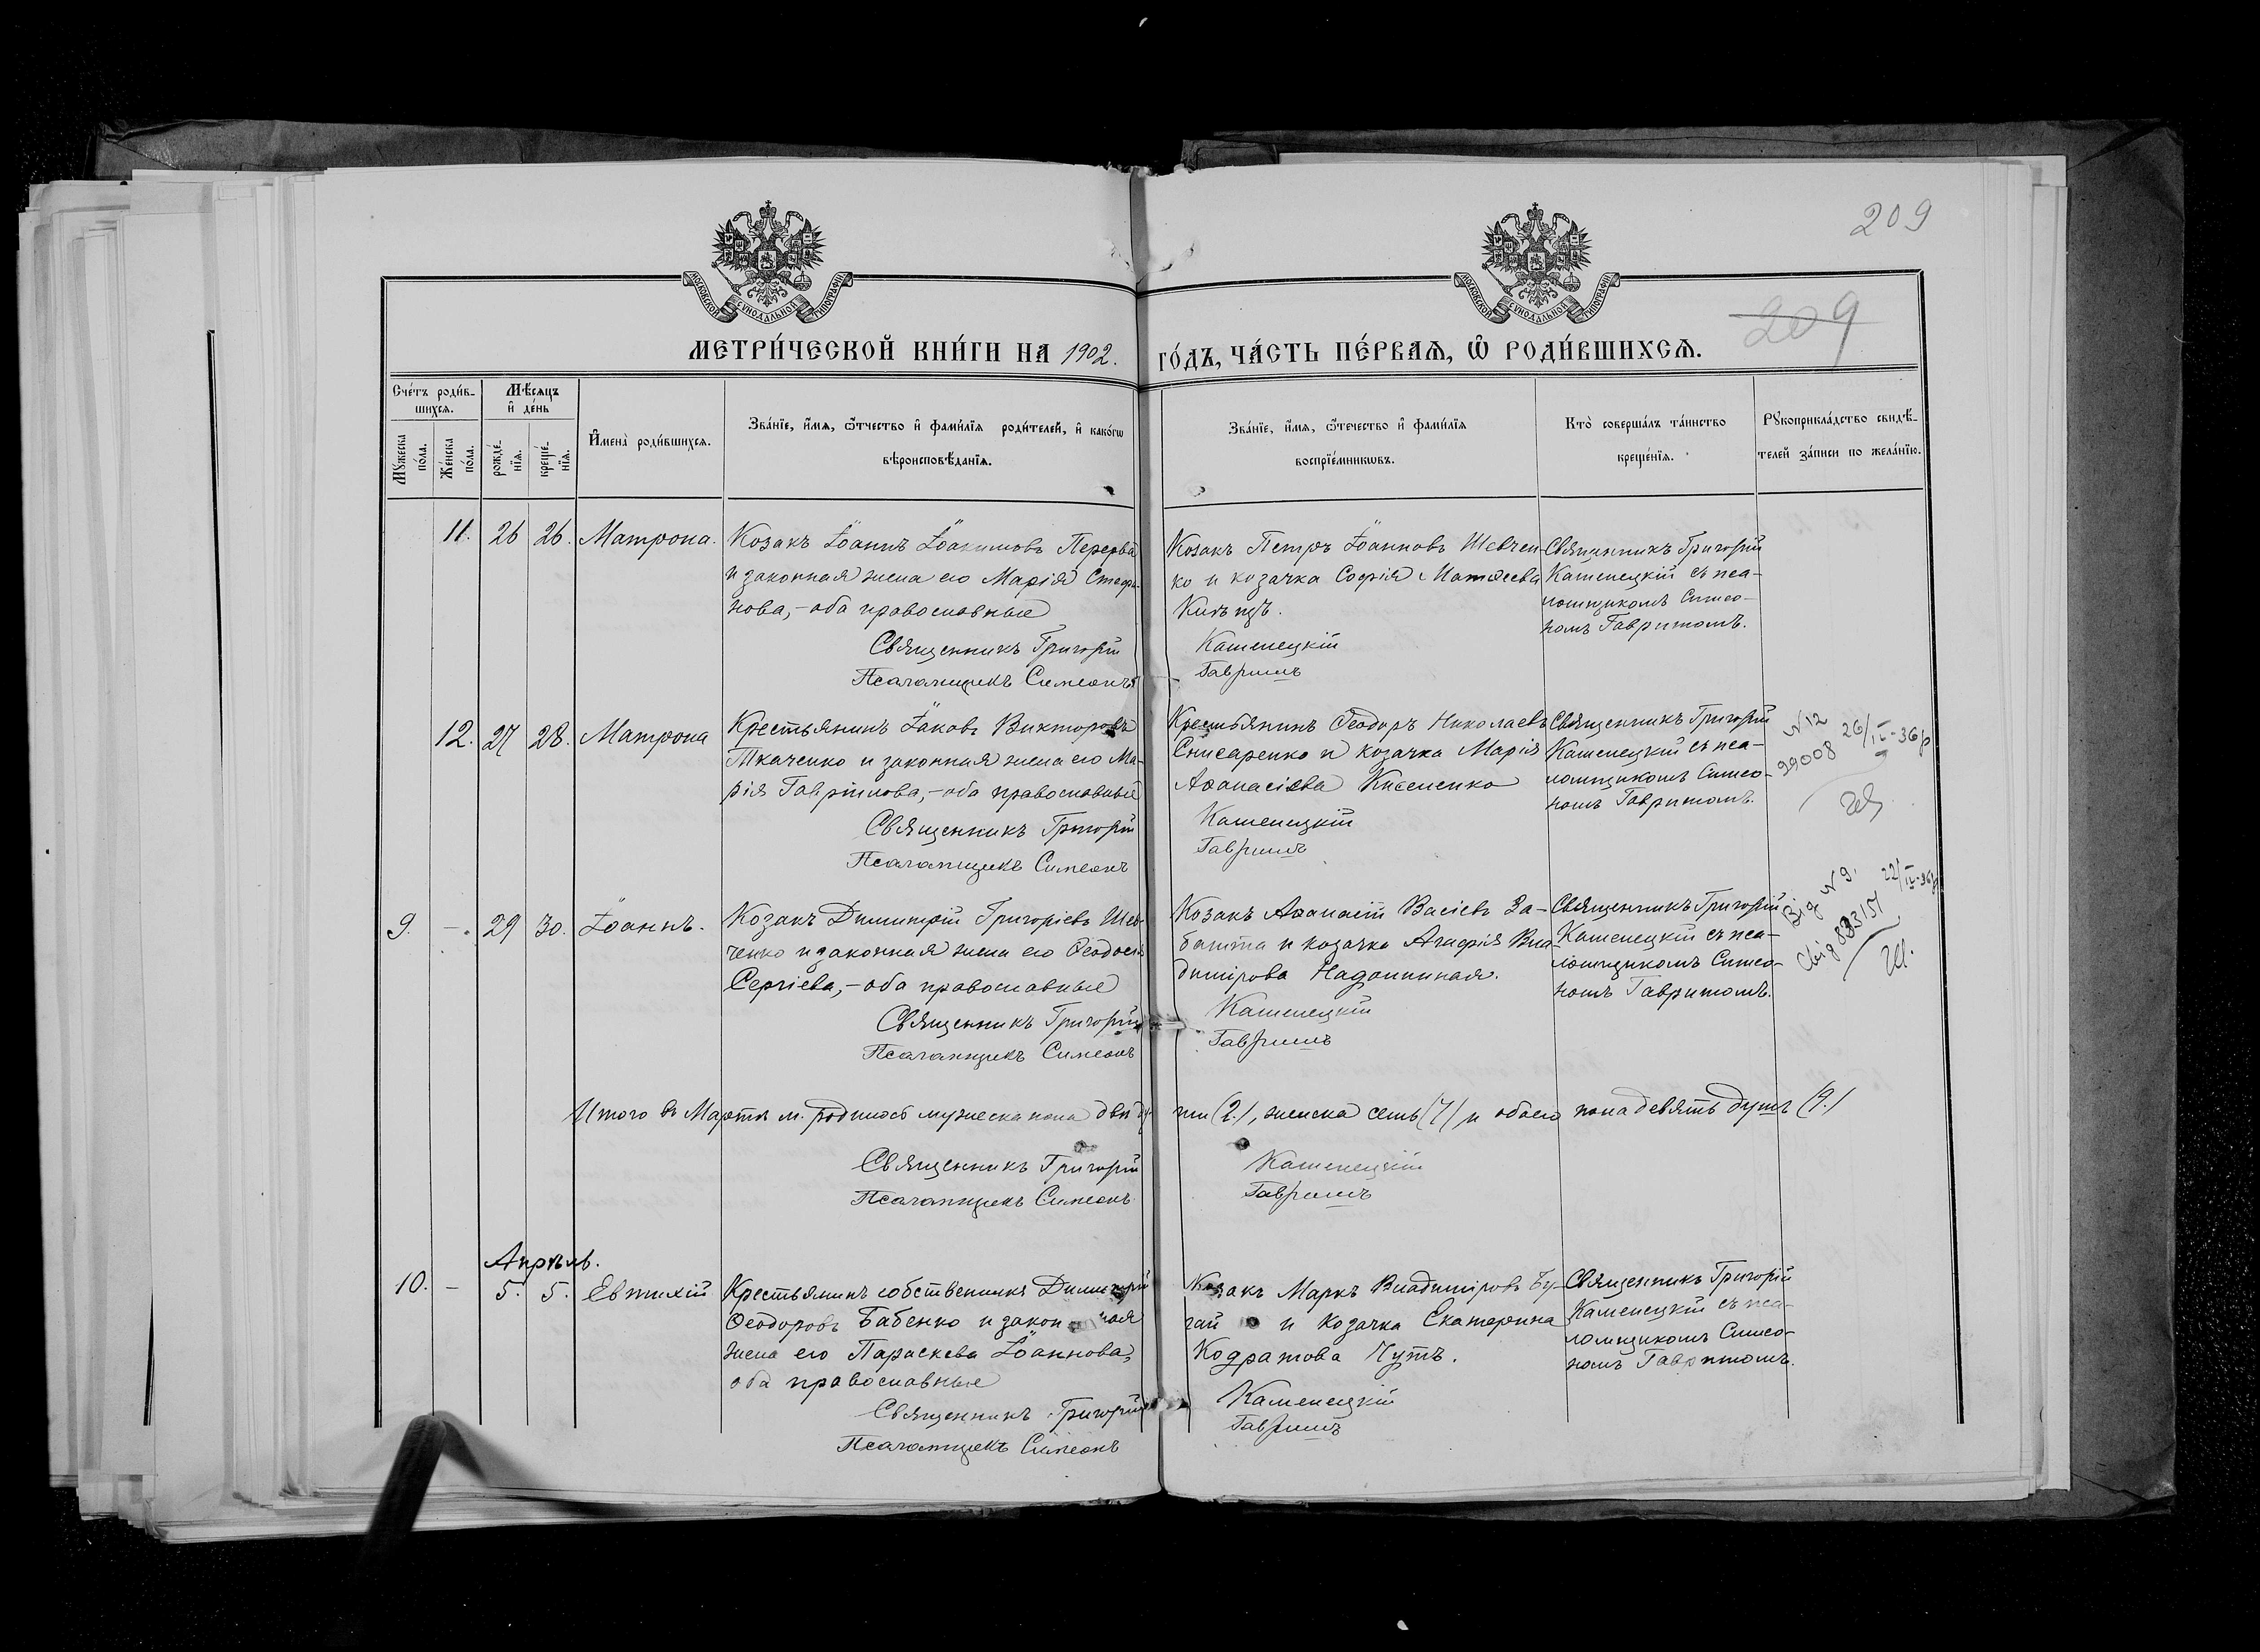 209
209
МОСКОВСКОЙ СѴНОДАЛЬНОЙ ТИПОГРАФІИ
МОСКОВСКОЙ СѴНОДАЛЬНОЙ ТИПОГРАФІИ
МЕТРИ́ЧЕСКОЙ КНИ́ГИ НА 1902. ГО́ДЪ, ЧА́СТЬ ПЕ́РВАѦ, Ѡ҆ РОДИ́ВШИХСѦ.
Сче́тъ роди́в-
шихсѧ.
Мꙋжеска по́ла.
Же́нска по́ла.
Мѣ́сѧцъ и҆ де́нь
рожде́-нїѧ.
креще́-нїѧ.
И҆мена̀ роди́вшихсѧ.
Зва́нїе, и҆́мѧ, ѿтчество и҆ фами́лїѧ роди́телей, и҆ како́гѡ
вѣроисповѣ́данїѧ.
Зва́нїе, и҆́мѧ, ѿтечество и҆ фами́лїѧ
воспрїе́мникѡвъ.
Кто̀ соверша́лъ та́инство
креще́нїѧ.
Рꙋкоприкла́дство свидѣ́-
телей за́писи по жела́нїю.
11. 26 26. Матрона. Козакъ Іоаннъ Іоакимовъ Перерва
и законная жена его Марія Стефа-
нова,-оба православные
Священникъ Григорій Каменецкій
Псаломщикъ Симеонъ Гавришъ
Козакъ Петръ Іоанновъ Шевчен-
ко и козачка Софія Матѳеева
Священникъ Григорій
Каменецкій съ пса-
ломщикомъ Симео-
номъ Гавришомъ.
12. 27 28. Матрона Крестьянинъ Іаковъ Викторовъ
Ткаченко и законная жена его Ма-
рія Гавріилова,-оба православные
Священникъ Григорій Каменецкій
Псаломщикъ Симеонъ Гавришъ
Крестьянинъ Ѳеодоръ Николаевъ
Снисаренко и козачка Марія
Аѳанасіева
Священникъ Григорій
Каменецкій съ пса-
ломщикомъ Симео-
номъ Гавришомъ.
N 12
99008 26/IV-36р
9. -. 29 30. Іоаннъ. Козакъ Димитрій Григоріевъ Шев-
ченко и законная жена его Ѳеодосія
Сергіева,-оба православные
Священникъ Григорій Каменецкій
Псаломщикъ Симеонъ Гавришъ
Козакъ Аѳанасій Васіевъ За-
башта и козачка Агафія Вла-
димірова
Священникъ Григорій
Каменецкій съ пса-
ломщикомъ Симео-
номъ Гавришомъ.
Від N 9.
22/IV-36р
Итого въ Мартѣ м. родилось мужеска пола двѣ ду-ши (2.), женска семь (7) и обоего пола девять душъ (9.)
Священникъ Григорій Каменецкій
Псаломщикъ Симеонъ Гавришъ
Апрѣль.
10. - 5. 5. Евтихій Крестьянинъ собственникъ Димитрій
Ѳеодоровъ Бабенко и законная
жена его Параскева Іоаннова,
оба православные
Священникъ Григорій Каменецкій
Псаломщикъ Симеонъ Гавришъ
Козакъ Маркъ Владиміровъ Бу-
гай и козачка Екатерина
Кодратова Чутъ.
Священникъ Григорій
Каменецкій съ пса-
ломщикомъ Симео-
номъ Гавришомъ.